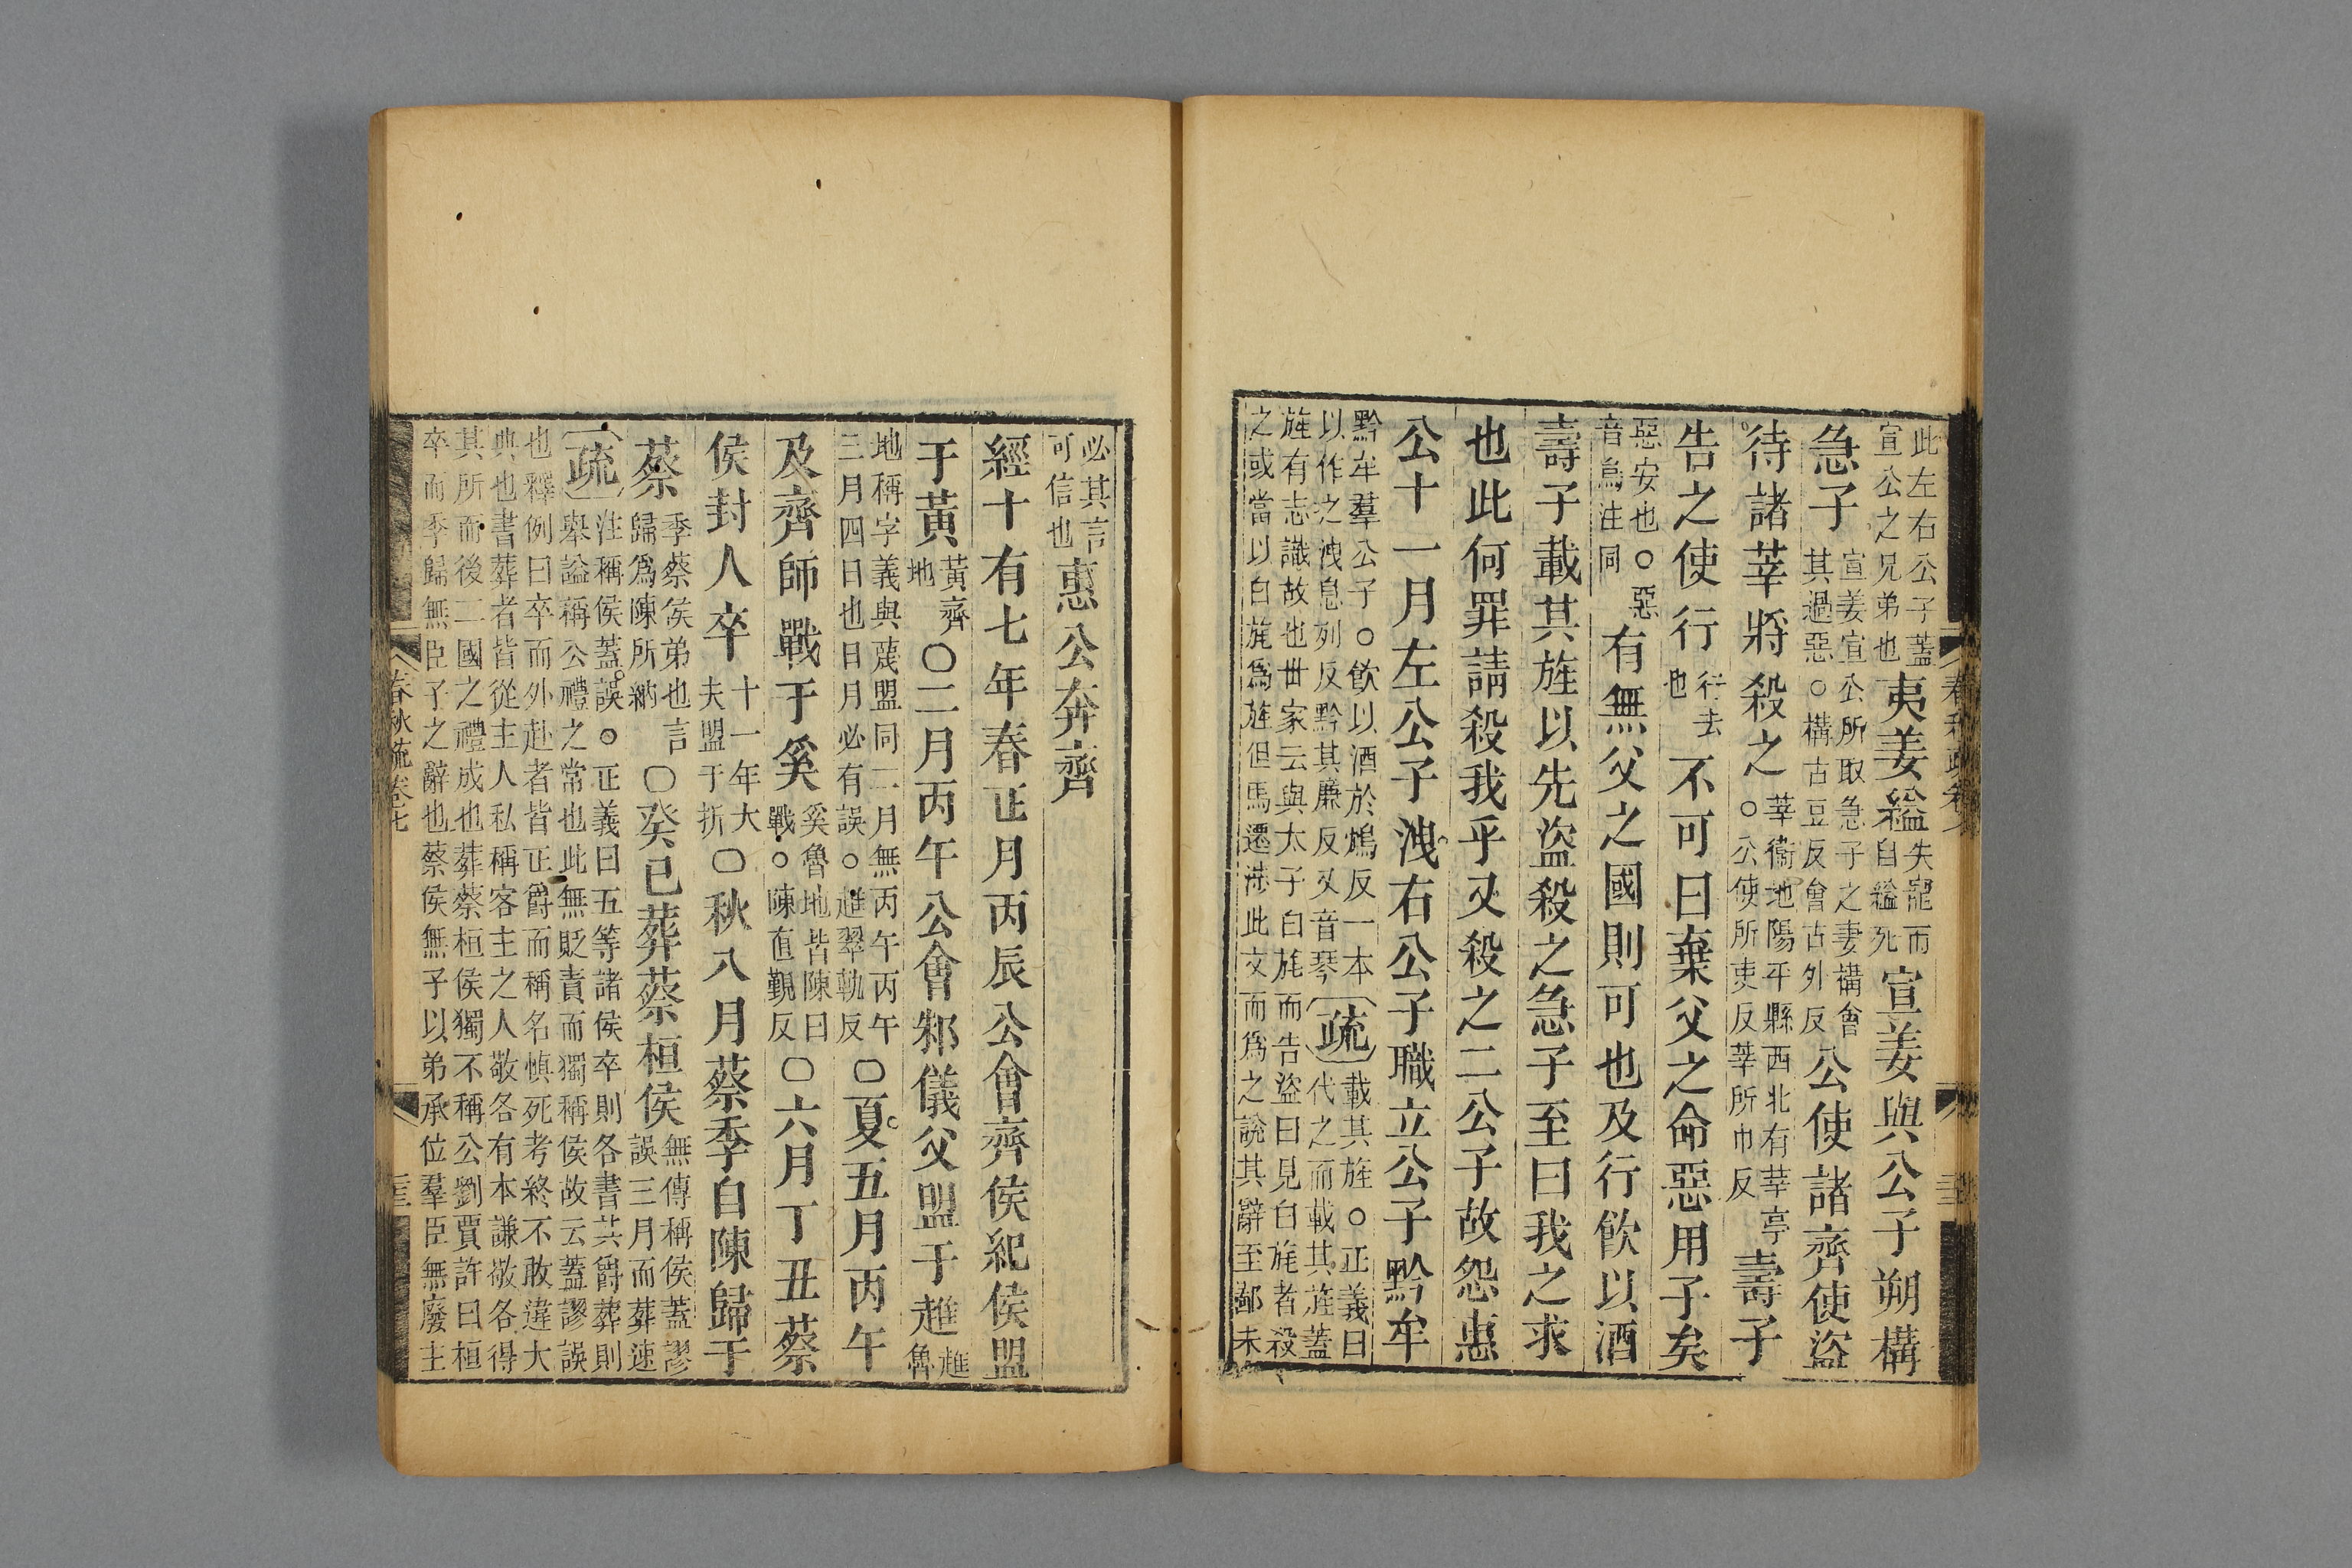 此左右公子蓋
宣公之兄弟也
夷姜縊
失寵而
自縊死
宣姜與公子朔構
急子
宣姜宣公所取急子之妻構會
其過惡○構古豆反會古外反
公使諸齊使盜
待諸莘將殺之
莘衞地陽平縣西北有莘亭
○公使所吏反莘所巾反
壽子
告之使行
行去
也
不可曰棄父之命惡用子矣
惡安也○惡
音烏注同
有無父之國則可也及行飲以酒
壽子載其旌以先盜殺之急子至曰我之求
也此何罪請殺我乎又殺之二公子故怨惠
公十一月左公子洩右公子職立公子黔牟
黔牟羣公子○飲以酒於鴆反一本
以作之洩息列反黔其廉反又音琴
疏
載其旌○正義曰
代之而載其旌蓋
旌有志識故也世家云與太子白旄而告盜曰見白旄者殺
之或當以白旄爲旌但馬遷涉此文而爲之說其辭至鄙未
春秋疏卷七
必其言
可信也
惠公奔齊
經十有七年春正月丙辰公會齊侯紀侯盟
于黃
黃齊
地
○二月丙午公會邾儀父盟于趡
趡
魯
地稱字義與蔑盟同二月無丙午丙午
三月四日也日月必有誤○趡翠軌反
○夏五月丙午
及齊師戰于奚
奚魯地皆陳曰
戰○陳直覲反
○六月丁丑蔡
侯封人卒
十一年大
夫盟于折
○秋八月蔡季自陳歸于
蔡
季蔡侯弟也言
歸爲陳所納
○癸巳葬蔡桓侯
無傳稱侯蓋謬
誤三月而葬速
疏
注稱侯蓋誤○正義曰五等諸侯卒則各書其爵葬則
舉謚稱公禮之常也此無貶責而獨稱侯故云蓋謬誤
也釋例曰卒而外赴者皆正爵而稱名愼死考終不敢違大
典也書葬者皆從主人私稱客主之人敬各有本謙敬各得
其所而後二國之禮成也葬蔡桓侯獨不稱公劉賈許曰桓
卒而季歸無臣子之辭也蔡侯無子以弟承位羣臣無廢主
春秋疏卷七